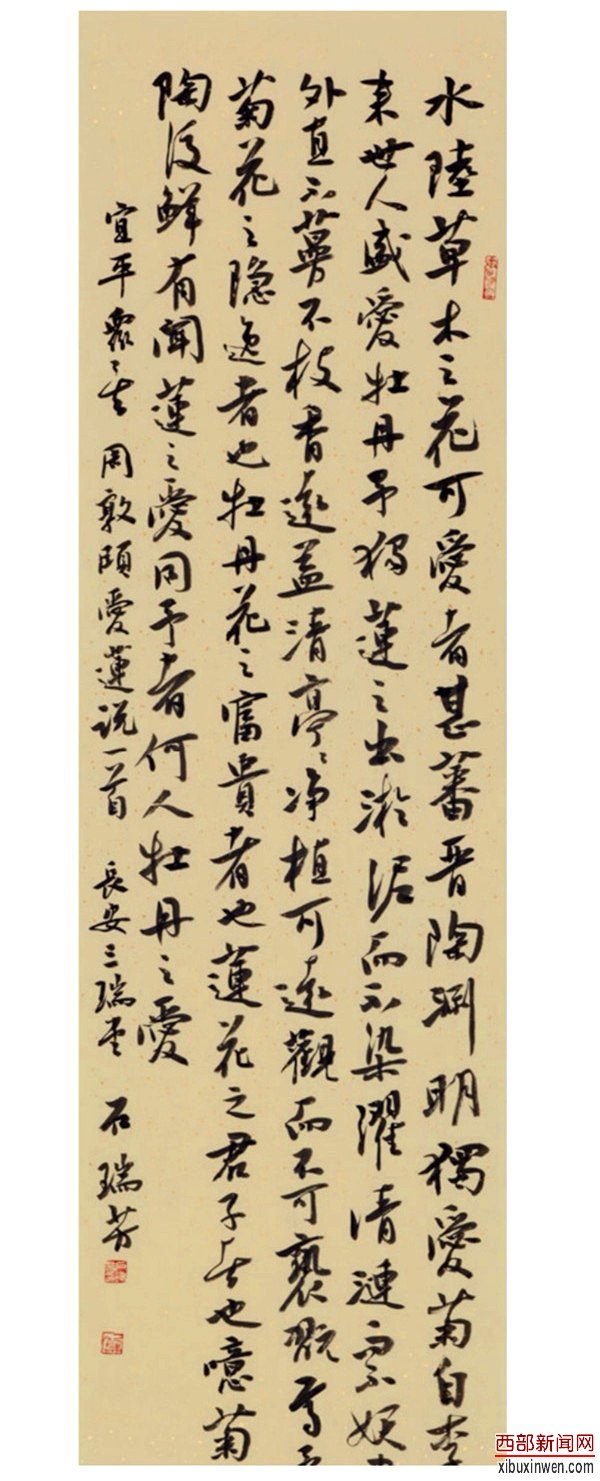 水陸草木之花可愛者甚蕃晋陶渊明獨愛菊自李
来世人盛愛牡丹予独蓮之出淤泥而不染濯清漣而不妖
外直不蔓不枝香遠益清亭〻净植可遠觀而不可褻翫焉予
菊花之隐逸者也牡丹花之富貴者也蓮花之君子者也噫菊
陶後鮮有聞蓮之愛同予者何人牡丹之愛
宜乎衆矣 周敦頤愛蓮説一首 長安三瑞堂 石瑞芳
西部新闻网
xibuxinwen.com